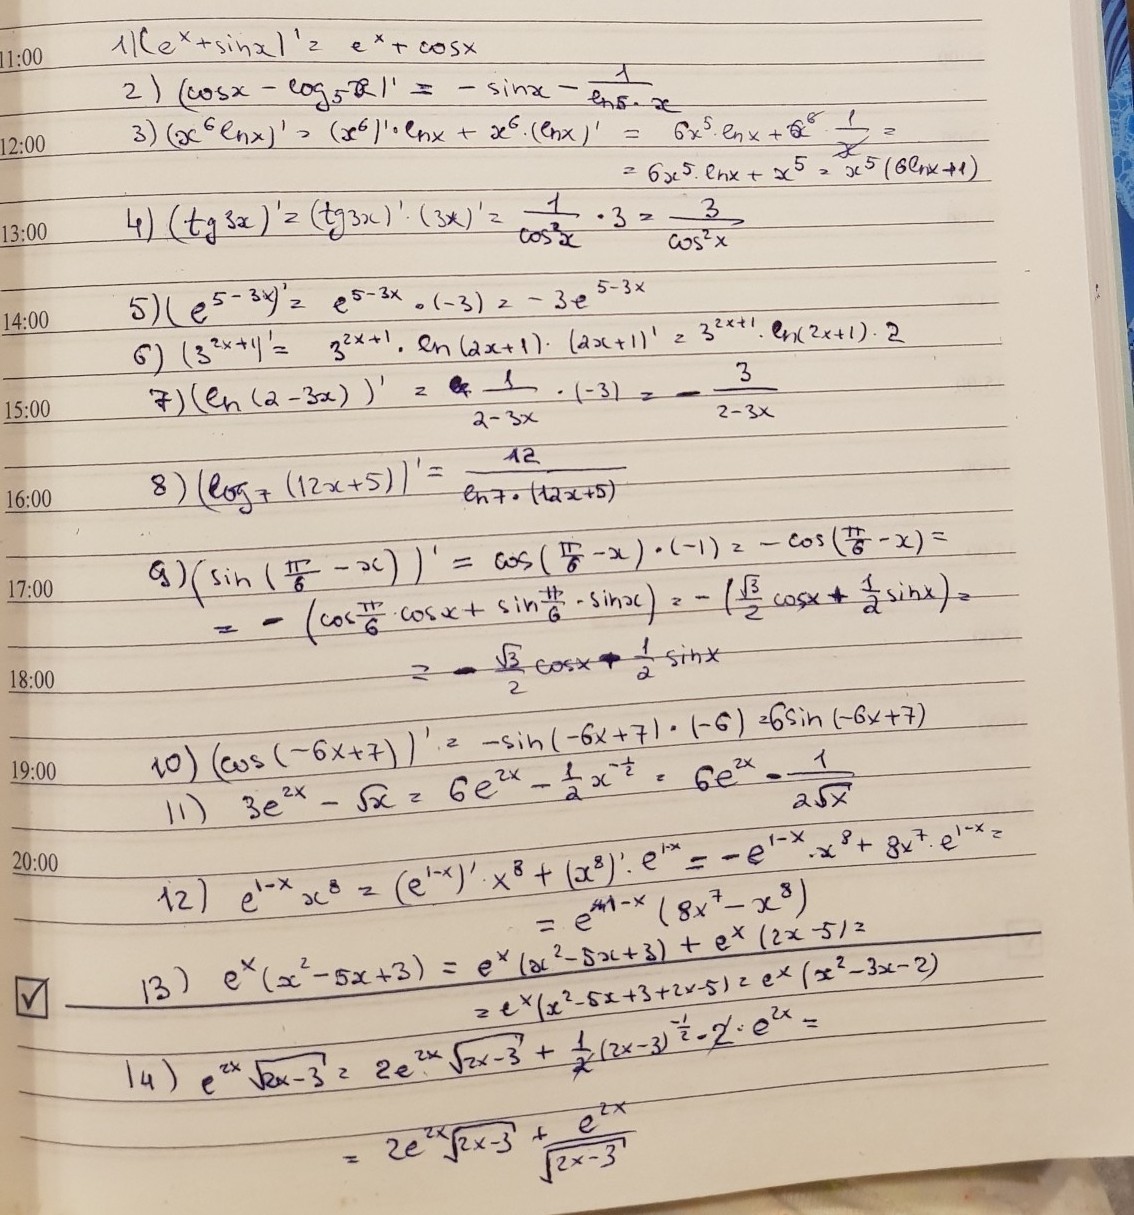 11:00
1) (eˣ + sinx)' = eˣ + cosx
2) (cosx - log₅x)' = - sinx - 1/(ln5·x)
12:00
3) (x⁶ lnx)' = (x⁶)'·lnx + x⁶·(lnx)' = 6x⁵·lnx + x⁶·1/x =
= 6x⁵·lnx + x⁵ = x⁵(6lnx+1)
13:00
4) (tg3x)' = (tg3x)'·(3x)' = 1/cos²x · 3 = 3/cos²x
14:00
5) (e^(5-3x))' = e^(5-3x)·(-3) = -3e^(5-3x)
6) (3^(2x+1))' = 3^(2x+1)·ln(2x+1)·(2x+1)' = 3^(2x+1)·ln(2x+1)·2
15:00
7) (ln(2-3x))' = 1/(2-3x) · (-3) = - 3/(2-3x)
16:00
8) (log₇(12x+5))' = 12/(ln7·(12x+5))
17:00
9) (sin(π/6 - x))' = cos(π/6 - x)·(-1) = -cos(π/6 - x) =
= - (cos π/6·cosx + sin π/6·sinx) = - (√3/2 cosx + 1/2 sinx) =
18:00
= - √3/2 cosx - 1/2 sinx
19:00
10) (cos(-6x+7))' = -sin(-6x+7)·(-6) = 6sin(-6x+7)
11) 3e^(2x) - √x = 6e^(2x) - 1/2 x^(-1/2) = 6e^(2x) - 1/(2√x)
20:00
12) e^(1-x) x⁸ = (e^(1-x))'·x⁸ + (x⁸)'·e^(1-x) = -e^(1-x)·x⁸ + 8x⁷·e^(1-x) =
= e^(1-x) (8x⁷ - x⁸)
13) eˣ(x²-5x+3) = eˣ(x²-5x+3) + eˣ(2x-5) =
= eˣ(x²-5x+3+2x-5) = eˣ(x²-3x-2)
14) e^(2x) √(2x-3) = 2e^(2x)·√(2x-3) + 1/2 (2x-3)^(-1/2)·2·e^(2x) =
= 2e^(2x) √(2x-3) + e^(2x)/√(2x-3)